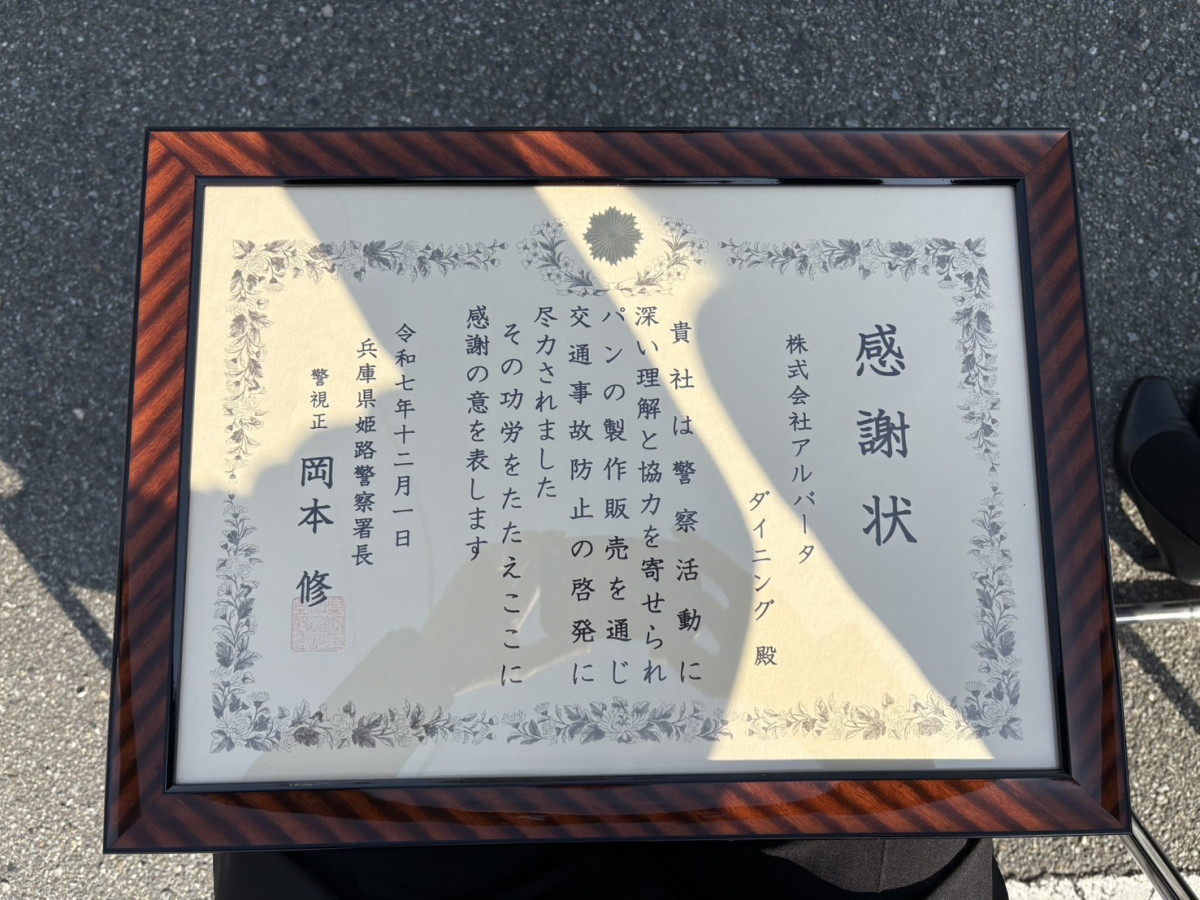 感謝状
株式会社アルバータ
ダイニング 殿
貴社は警察活動に
深い理解と協力を寄せられ
パンの製作販売を通じ
交通事故防止の啓発に
尽力されました
その功労をたたえここに
感謝の意を表します
令和七年十二月一日
兵庫県姫路警察署長
警視正 岡本 修